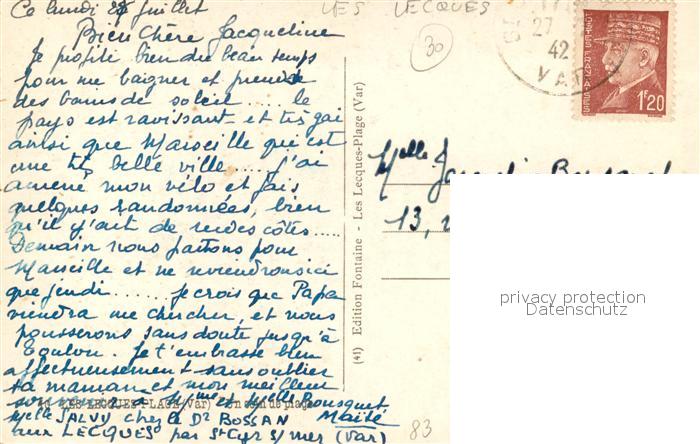 Ce lundi 27 juillet
LES LECQUES
30
27
42
VAR
POSTES FRANÇAISES
1F20
Bien Chère Jacqueline
Je profite bien du beau temps
pour me baigner et prendre
des bains de soleil ..... le
pays est ravissant et très gai
ainsi que Marseille qui est
une très belle ville ..... j'ai
amené mon vélo et fais
quelques randonnées, bien
qu'il y ait de rudes côtes .....
Demain nous partons pour
Marseille et ne reviendrons ici
que jeudi ...... je crois que Papa
viendra me chercher, et nous
pousserons sans doute jusqu'à
Toulon. Je t'embrasse bien
affectueusement sans oublier
ta maman et mon meilleur
souvenir à Mme et Melle Bousquet
Maïté
Melle SALVY chez le Dr BOSSAN
aux LECQUES par St Cyr s/mer (Var)
LES LECQUES-PLAGE (Var)
(41) Edition Fontaine - Les Lecques-Plage (Var)
Melle
13,
83
privacy protection
Datenschutz